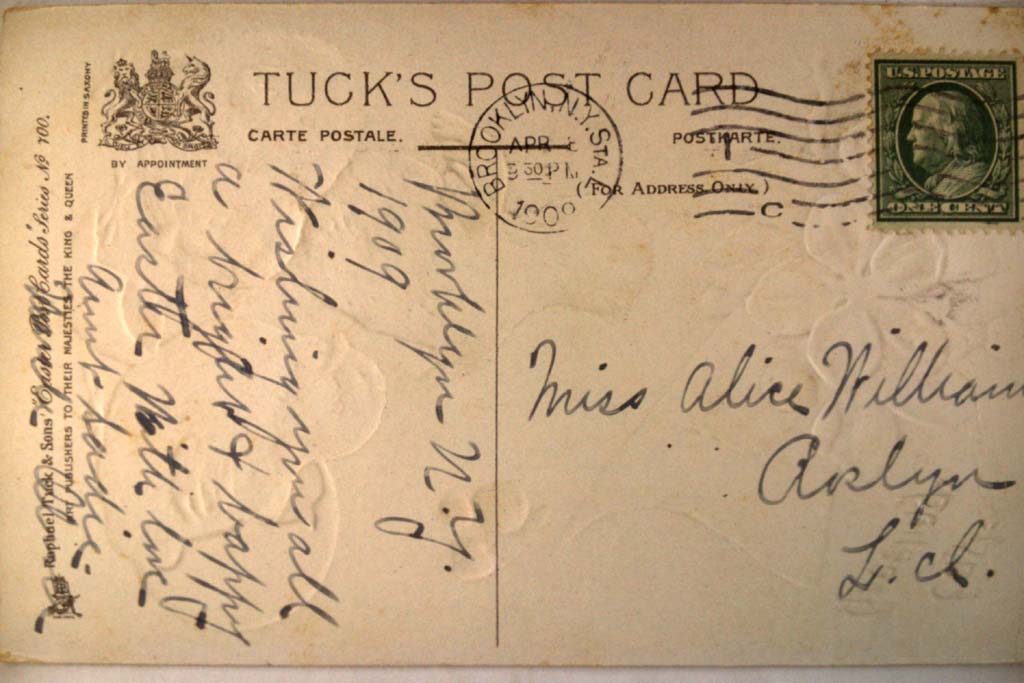 TUCK'S POST CARD
CARTE POSTALE.
POSTKARTE.
(FOR ADDRESS ONLY.)
PRINTED IN SAXONY
BY APPOINTMENT
BROOKLYN, N.Y. STA.
APR
30 P
1909
U.S. POSTAGE
ONE CENT
Brooklyn N.Y.
1909
Wishing you all
a bright & happy
Easter With love
Aunt Sadie
Raphael Tuck & Sons' "Easter Post Cards" Series No 700.
ART PUBLISHERS TO THEIR MAJESTIES THE KING & QUEEN
Miss Alice William
Roslyn
L. I.